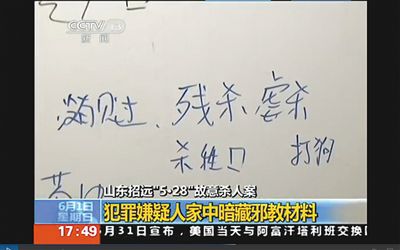 CCTV 13
新闻
见过, 残杀 虐杀
杀牲口 打狗
山东招远"5·28"故意杀人案
6月1日
星期日
犯罪嫌疑人家中暗藏邪教材料
17:49 月31日宣布，美国当天与阿富汗塔利班交换